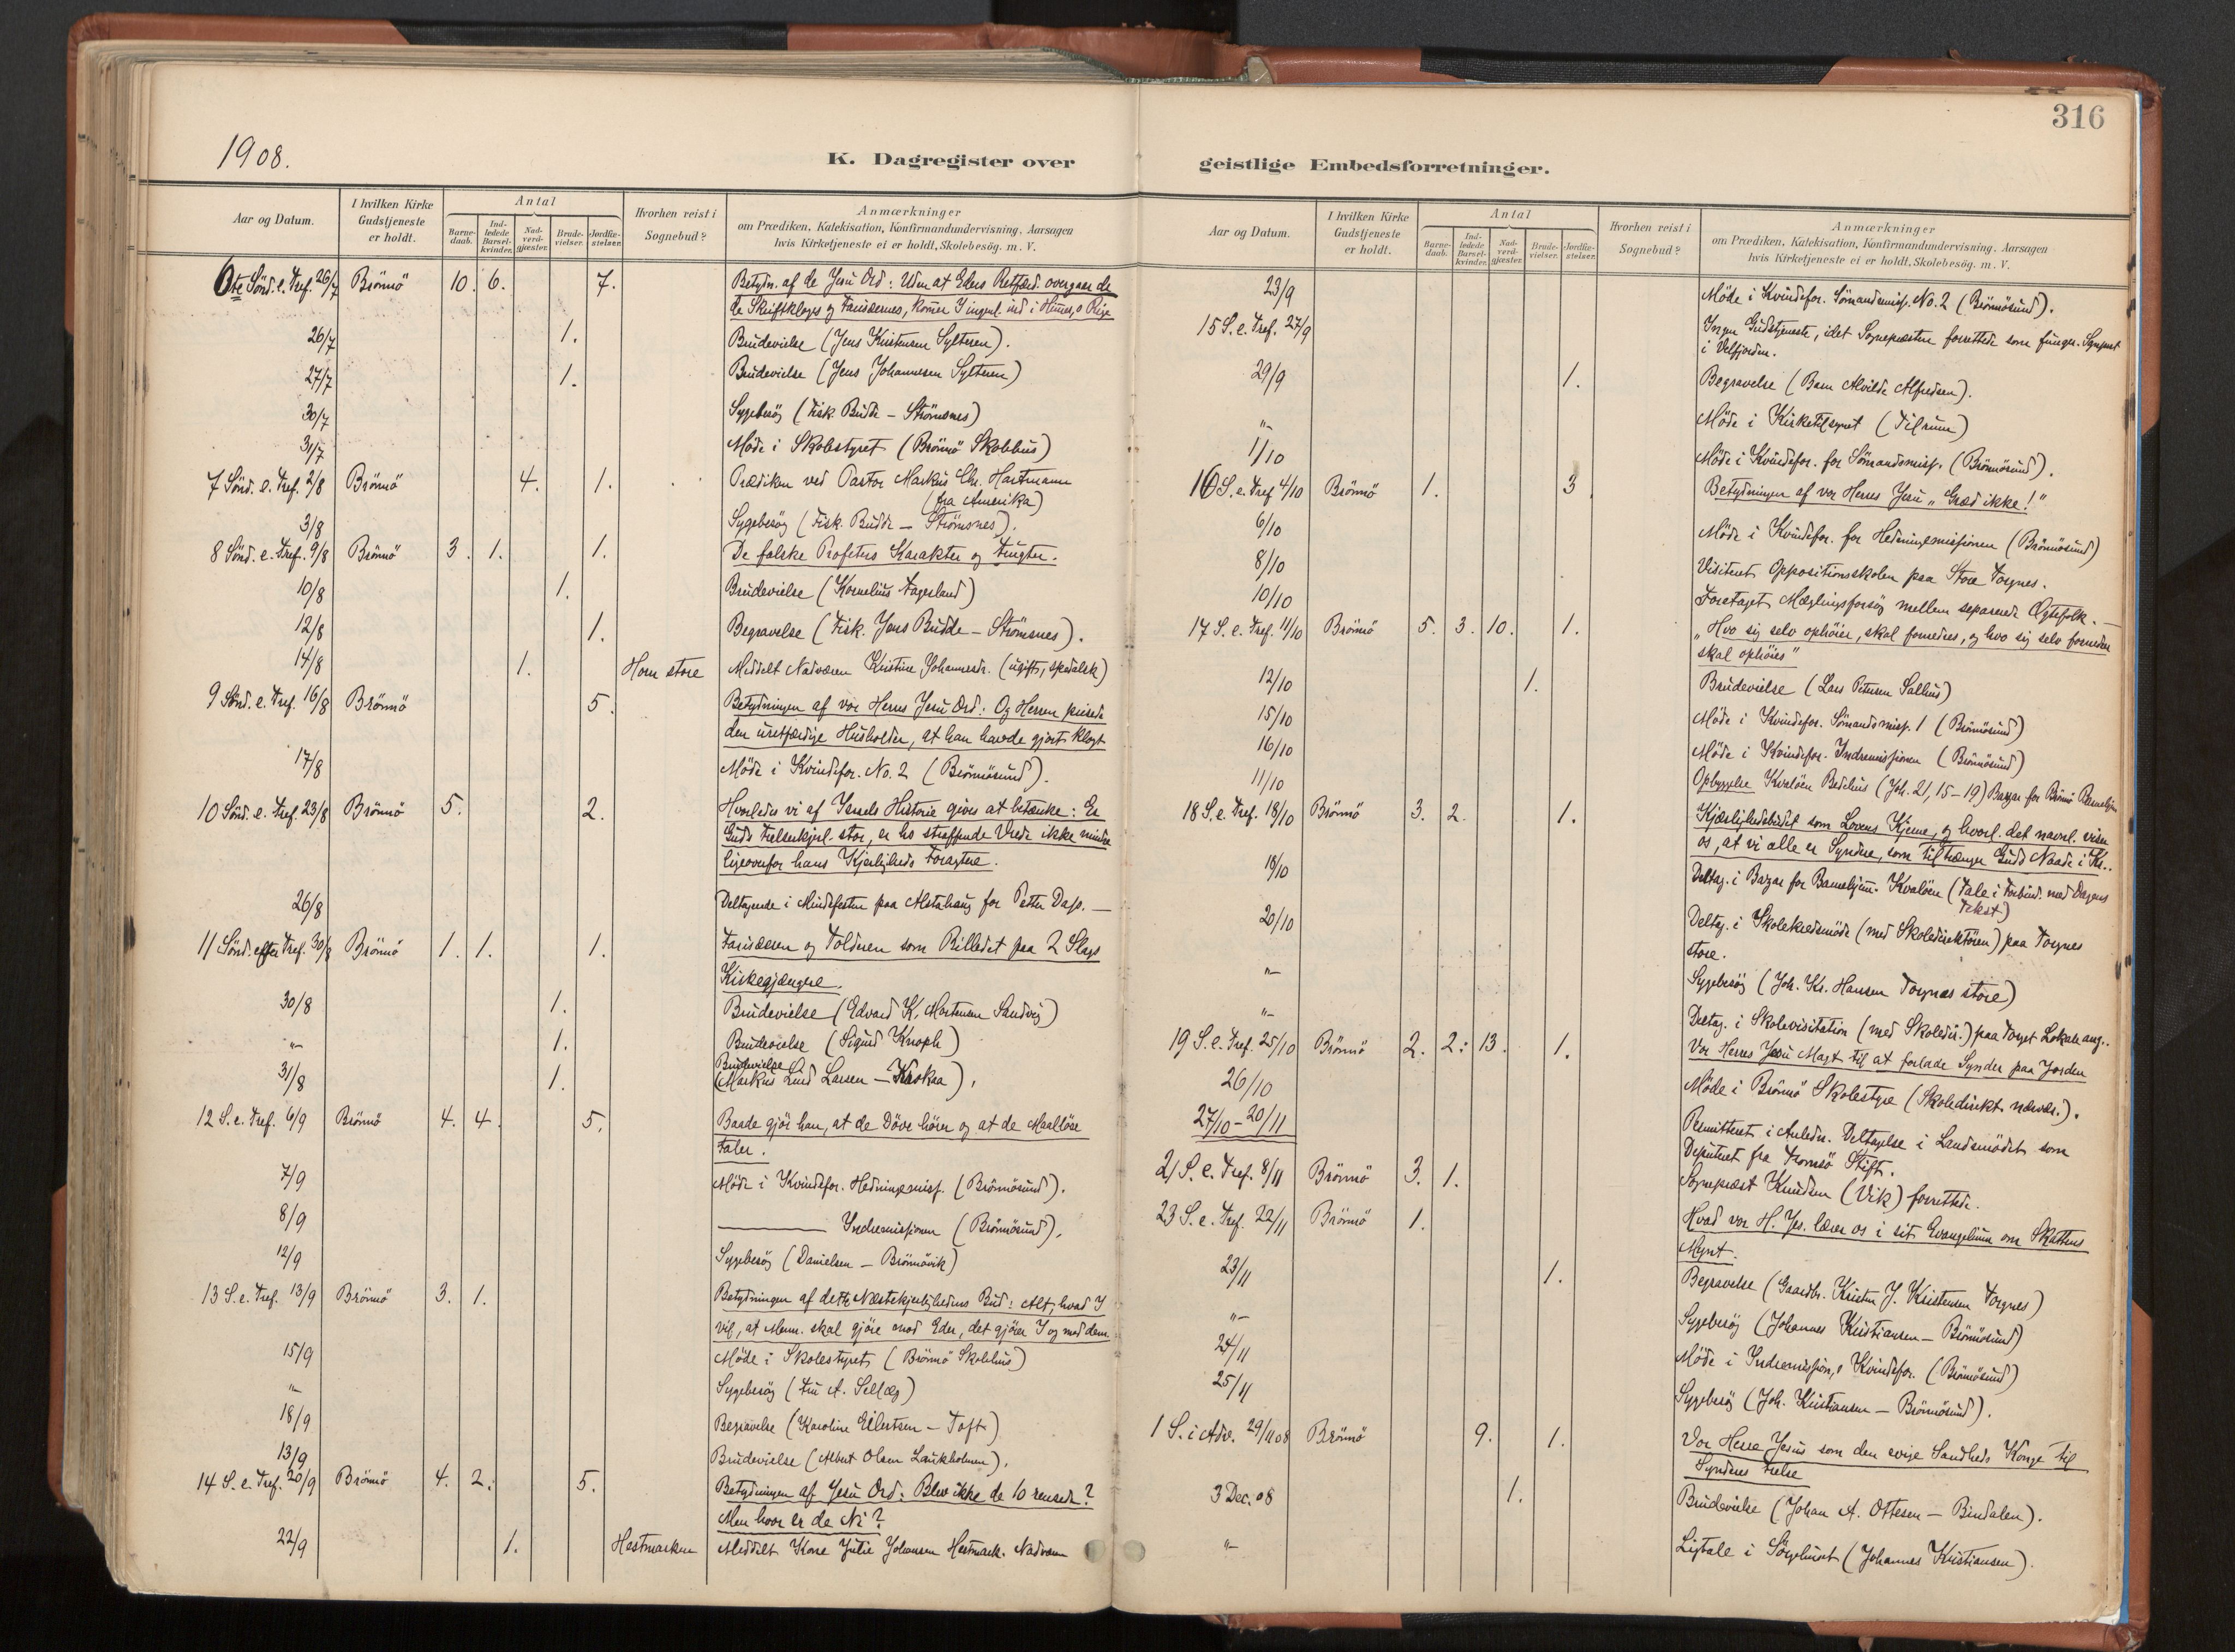 316
1908.
K. Dagregister over
geistlige Embedsforretninger.
Aar og Datum.
I hvilken Kirke Gudstjeneste er holdt.
Antal
Barnedaab.
Indledede Barselkvinder.
Nadverdgjæster.
Brudevielser.
Jordfæstelser.
Hvorhen reist i Sognebud?
Anmærkninger
om Prædiken, Katekisation, Konfirmandundervisning. Aarsagen
hvis Kirketjeneste ei er holdt, Skolebesög. m. V.
6te Sönd. e. Tref. 26/7 Brönnö 10. 6. 7. Betydn. af de Jesu Ord: Uden at Eders Retfærd. overgaar de
de Skriftkloges og Farisæernes, komer I ingenl. ind i Himes Rige
26/7 1. Brudevielse (Jens Kristensen Sylteren).
27/7 1. Brudevielse (Jens Johannesen Sylteren)
30/7 Sygebesög (Fisk. Budde – Strömsnes)
31/7 Möde i Skolestyret (Brönnö Skolehus)
7 Sönd. e. Tref. 2/8 Brönnö 4. 1. Prædiken ved Pastor Markus Chr. Hartmann
(fra Amerika)
3/8 Sygebesög (Fisk. Budde – Strömsnes).
8 Sönd. e. Tref. 9/8 Brönnö 3. 1. 1. De falske Profeters Karakter og Frugter.
10/8 1. Brudevielse (Kornelius Fagerland)
12/8 1. Begravelse (Fisk. Jens Budde – Strömsnes).
14/8 1. Horn store Meddelt Nadveren Kristine Johannesdr. (ugift, spedalsk)
9 Sönd. e. Tref. 16/8 Brönnö 5. Betydningen af vor Herres Jesu Ord: Og Herren priste
den uretfærdige Husholder, at han havde gjort klogt
17/8 Möde i Kvindefor. No. 2 (Brönnösund).
10 Sönd. e. Tref. 23/8 Brönnö 5. 2. Hvorledes vi af Israels Historie gives at betænke: Er
Guds Frelserkjærl. stor, er hs straffende Vrede ikke mindre
ligeoverfor hans Kjærligheds Foragtere.
26/8 Deltagende i Mindefesten paa Alstahaug for Petter Dass. —
11 Sönd. efter Tref. 30/8 Brönnö 1. 1. 1. Farisæeren og Tolderen som Billedet paa 2 Slags
Kirkegjængere.
30/8 1. Brudevielse (Edvard K. Mortensen Sandvig)
"– 1. Brudevielse (Sigurd Knoph)
31/8 1. Brudevielse (Markus Lind Larsen – Krokaa).
12 S. e. Tref. 6/9 Brönnö 4. 4. 5. Baade gjör han, at de Döve hörer og at de Maallöse
taler.
7/9 Möde i Kvindefor. Hedningemiss. (Brönnösund).
8/9 ——— Indremissjonen (Brönnösund).
12/9 Sygebesög (Danielsen – Brönnövik)
13 S. e. Tref. 13/9 Brönnö 3. 1. Betydningen af dette Næstekjærlighedens Bud: Alt, hvad I
vil, at Menn. skal gjöre mod Eder, det gjörer I og mod dem
15/9 Möde i Skolestyret (Brönnö Skolehus)
"– Sygebesög (Fru A. Selläg)
18/9 Begravelse (Karoline Eilertsen – Toft)
13/9 Brudevielse (Albert Olsen Laukholmen).
14 S. e. Tref. 20/9 Brönnö 4. 2. 5. Betydningen af Jesu Ord: Blev ikke de 10 rensede?
Men hvor er de Ni?
22/9 1. Hestmarken Meddelt Kone Julie Johansen Hestmark. Nadveren
Aar og Datum.
I hvilken Kirke Gudstjeneste er holdt.
Antal
Barnedaab.
Indledede Barselkvinder.
Nadverdgjæster.
Brudevielser.
Jordfæstelser.
Hvorhen reist i Sognebud?
Anmærkninger
om Prædiken, Katekisation, Konfirmandundervisning. Aarsagen
hvis Kirketjeneste ei er holdt, Skolebesög. m. V.
23/9 Möde i Kvindefor. Sömandsmiss. No. 2 (Brönnösund).
15 S. e. Tref. 27/9 Ingen Gudstjeneste, idet Sognepræsten forrettede som funger. Sognepræst
i Velfjorden.
29/9 1. Begravelse (Barn Alvilde Alfredsen).
"– Möde i Kirketilsynet (Tilrum)
1/10 Möde i Kvindefor. for Sömandsmiss. (Brönnösund).
16 S. e. Tref 4/10 Brönnö 1. 3 Betydningen af vor Herres Jesu „Græd ikke!"
6/10 Möde i Kvindefor. for Hedningemissjonen (Brönnösund)
8/10 Visiteret Oppositionsskolen paa Store Torgnes.
10/10 Foretaget Mæglingsforsög mellem separerede Ægtefolk. —
17 S. e. Tref. 11/10 Brönnö 5. 3. 10. 1. „Hvo sig selv ophöier, skal fornedres, og hvo sig selv fornedrer
skal ophöies"
12/10 1. Brudevielse (Lars Petersen Salhus)
15/10 Möde i Kvindefor. Sömandsmiss. 1 (Brönnösund)
16/10 Möde i Kvindefor. Indremissjonen (Brönnösund)
11/10 Opbyggelse Kvalöen Bedehus (Joh. 21, 15–19) Bazar for Brönnö Barnehjem
18 S. e. Tref. 18/10 Brönnö 3. 2. 1. Kjærlighedsbudet som Lovens Kjerne, og hvorl. det navnl. viser
os, at vi alle er Syndere, som tiltrænger Guds Naade i Kr..
18/10 Deltag. i Bazar for Barnehjem. Kvalöen (Tale i Forbind. med Dagens
Tekst)
20/10 Deltag. i Skolekredsmöde (med Skoledirektören) paa Torgnes
store.
"– Sygebesög (Joh. Kr. Hansen Torgnes store)
"– Deltag. i Skolevisitation (med Skoledir.) paa Torget Lokale ang..
19 S. e. Tref. 25/10 Brönnö 2. 2. 13. 1. Vor Herres Jesu Magt til at forlade Synder paa Jorden
26/10 Möde i Brönnö Skolestyre (Skoledirekt. nærvær.).
27/10 – 20/11 Permitteret i Anledn. Deltagelse i Landsmödet som
Deputeret fra Tromsö Stift.
21 S. e. Tref. 8/11 Brönnö 3. 1. Sognepræst Knudsen (Vik) forrettede.
23 S. e. Tref. 22/11 Brönnö 1. Hvad vor H. Jes. lærer os i sit Evangelium om Skattens
Mynt.
23/11 1. Begravelse (Gaardbr. Kristen J. Kristensen Torgnes)
"– Sygebesög (Johannes Kristiansen – Brönnösund)
24/11 Möde i Indremissjons Kvindefor. (Brönnösund)
25/11 Sygebesög (Joh. Kristiansen – Brönnösund).
1 S. i Adv. 29/11 08 Brönnö 9. 1. Vor Herre Jesus som den evige Sandheds Konge til
Synderes Frelse
3 Dec. 08 1. Brudevielse (Johan A. Ottesen – Bindalen).
"– Ligtale i Sörgehuset (Johannes Kristiansen).